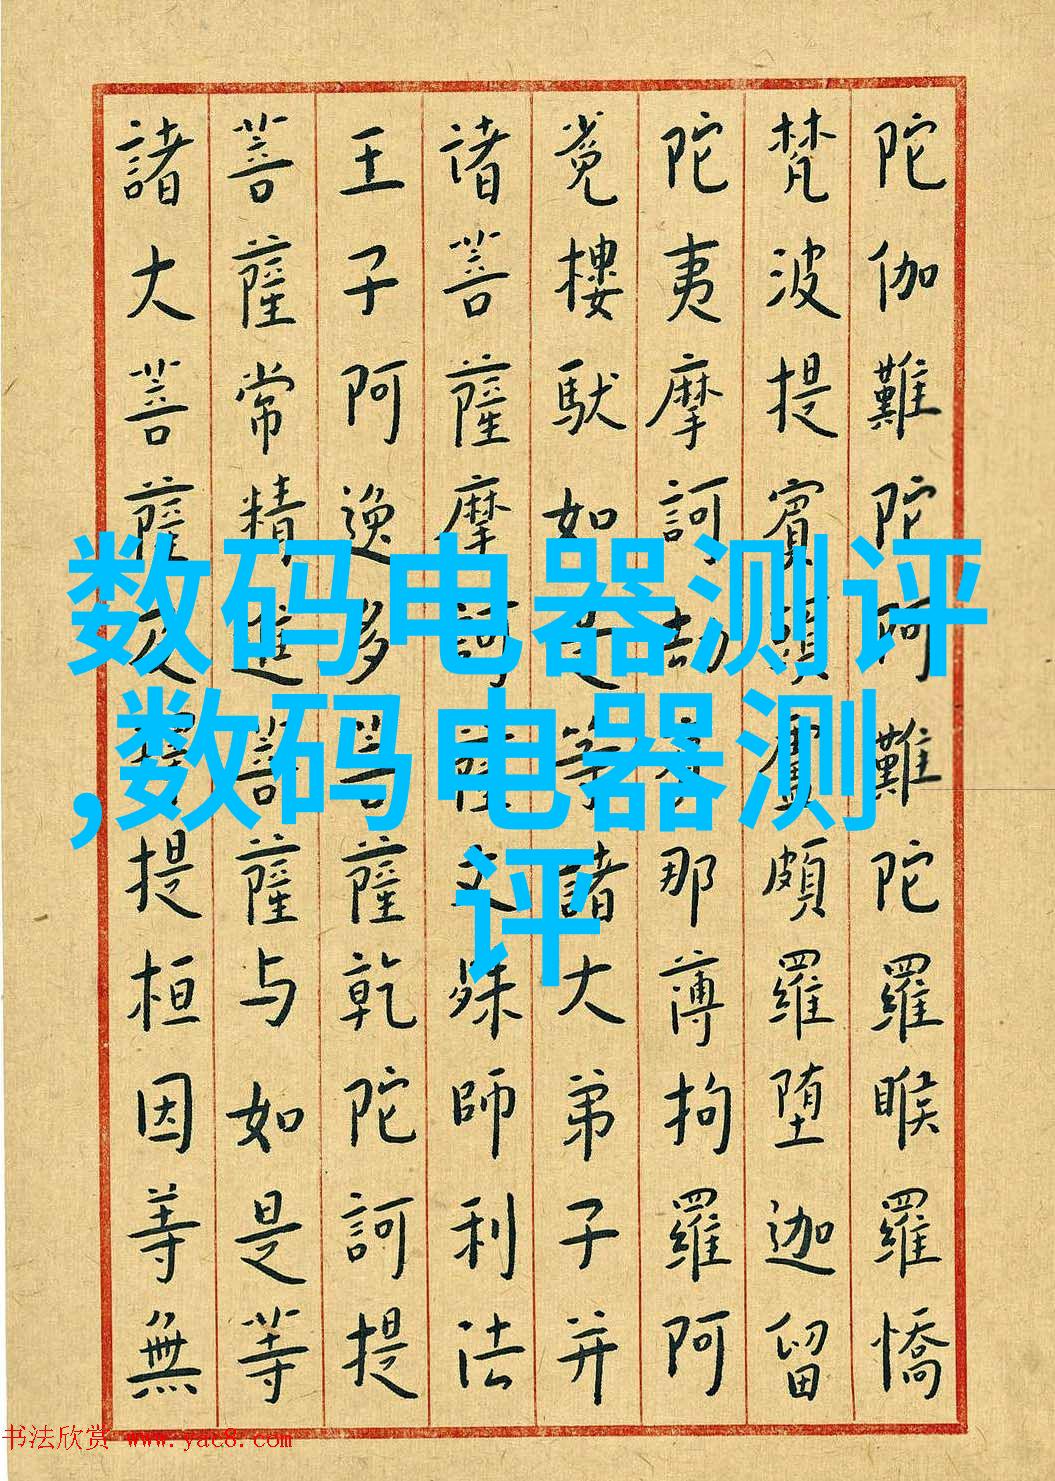 陀伽難陀阿難陀羅睺羅憍
梵波提賓頭盧頗羅堕迦留
陀夷摩訶劫賓那薄拘羅阿
㝹樓馱如是等諸大弟子并
诸菩薩摩訶薩文殊師利法
王子阿逸多菩薩乾陀訶提
菩薩常精進菩薩与如是等
諸大菩薩及釋提桓因等無
数码电器测评
,数码电器测
评
书法欣赏 www.yac8.com